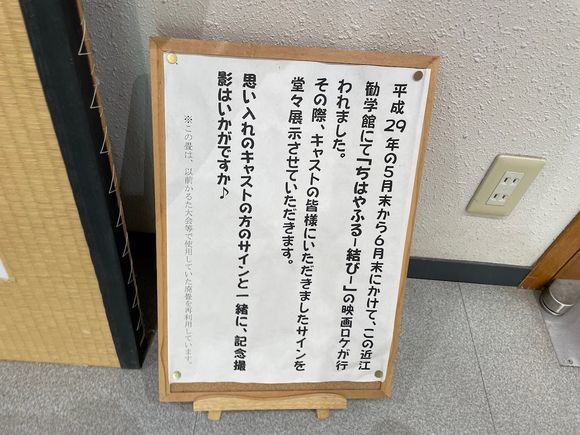 平成29年の5月末から6月末にかけて、この近江
勧学館にて「ちはやふるー結びー」の映画ロケが行
われました。
その際、キャストの皆様にいただきましたサインを
堂々展示させていただきます。
思い入れのキャストの方のサインと一緒に、記念撮
影はいかがですか♪
※この畳は、以前かるた大会等で使用していた廃畳を再利用しています。